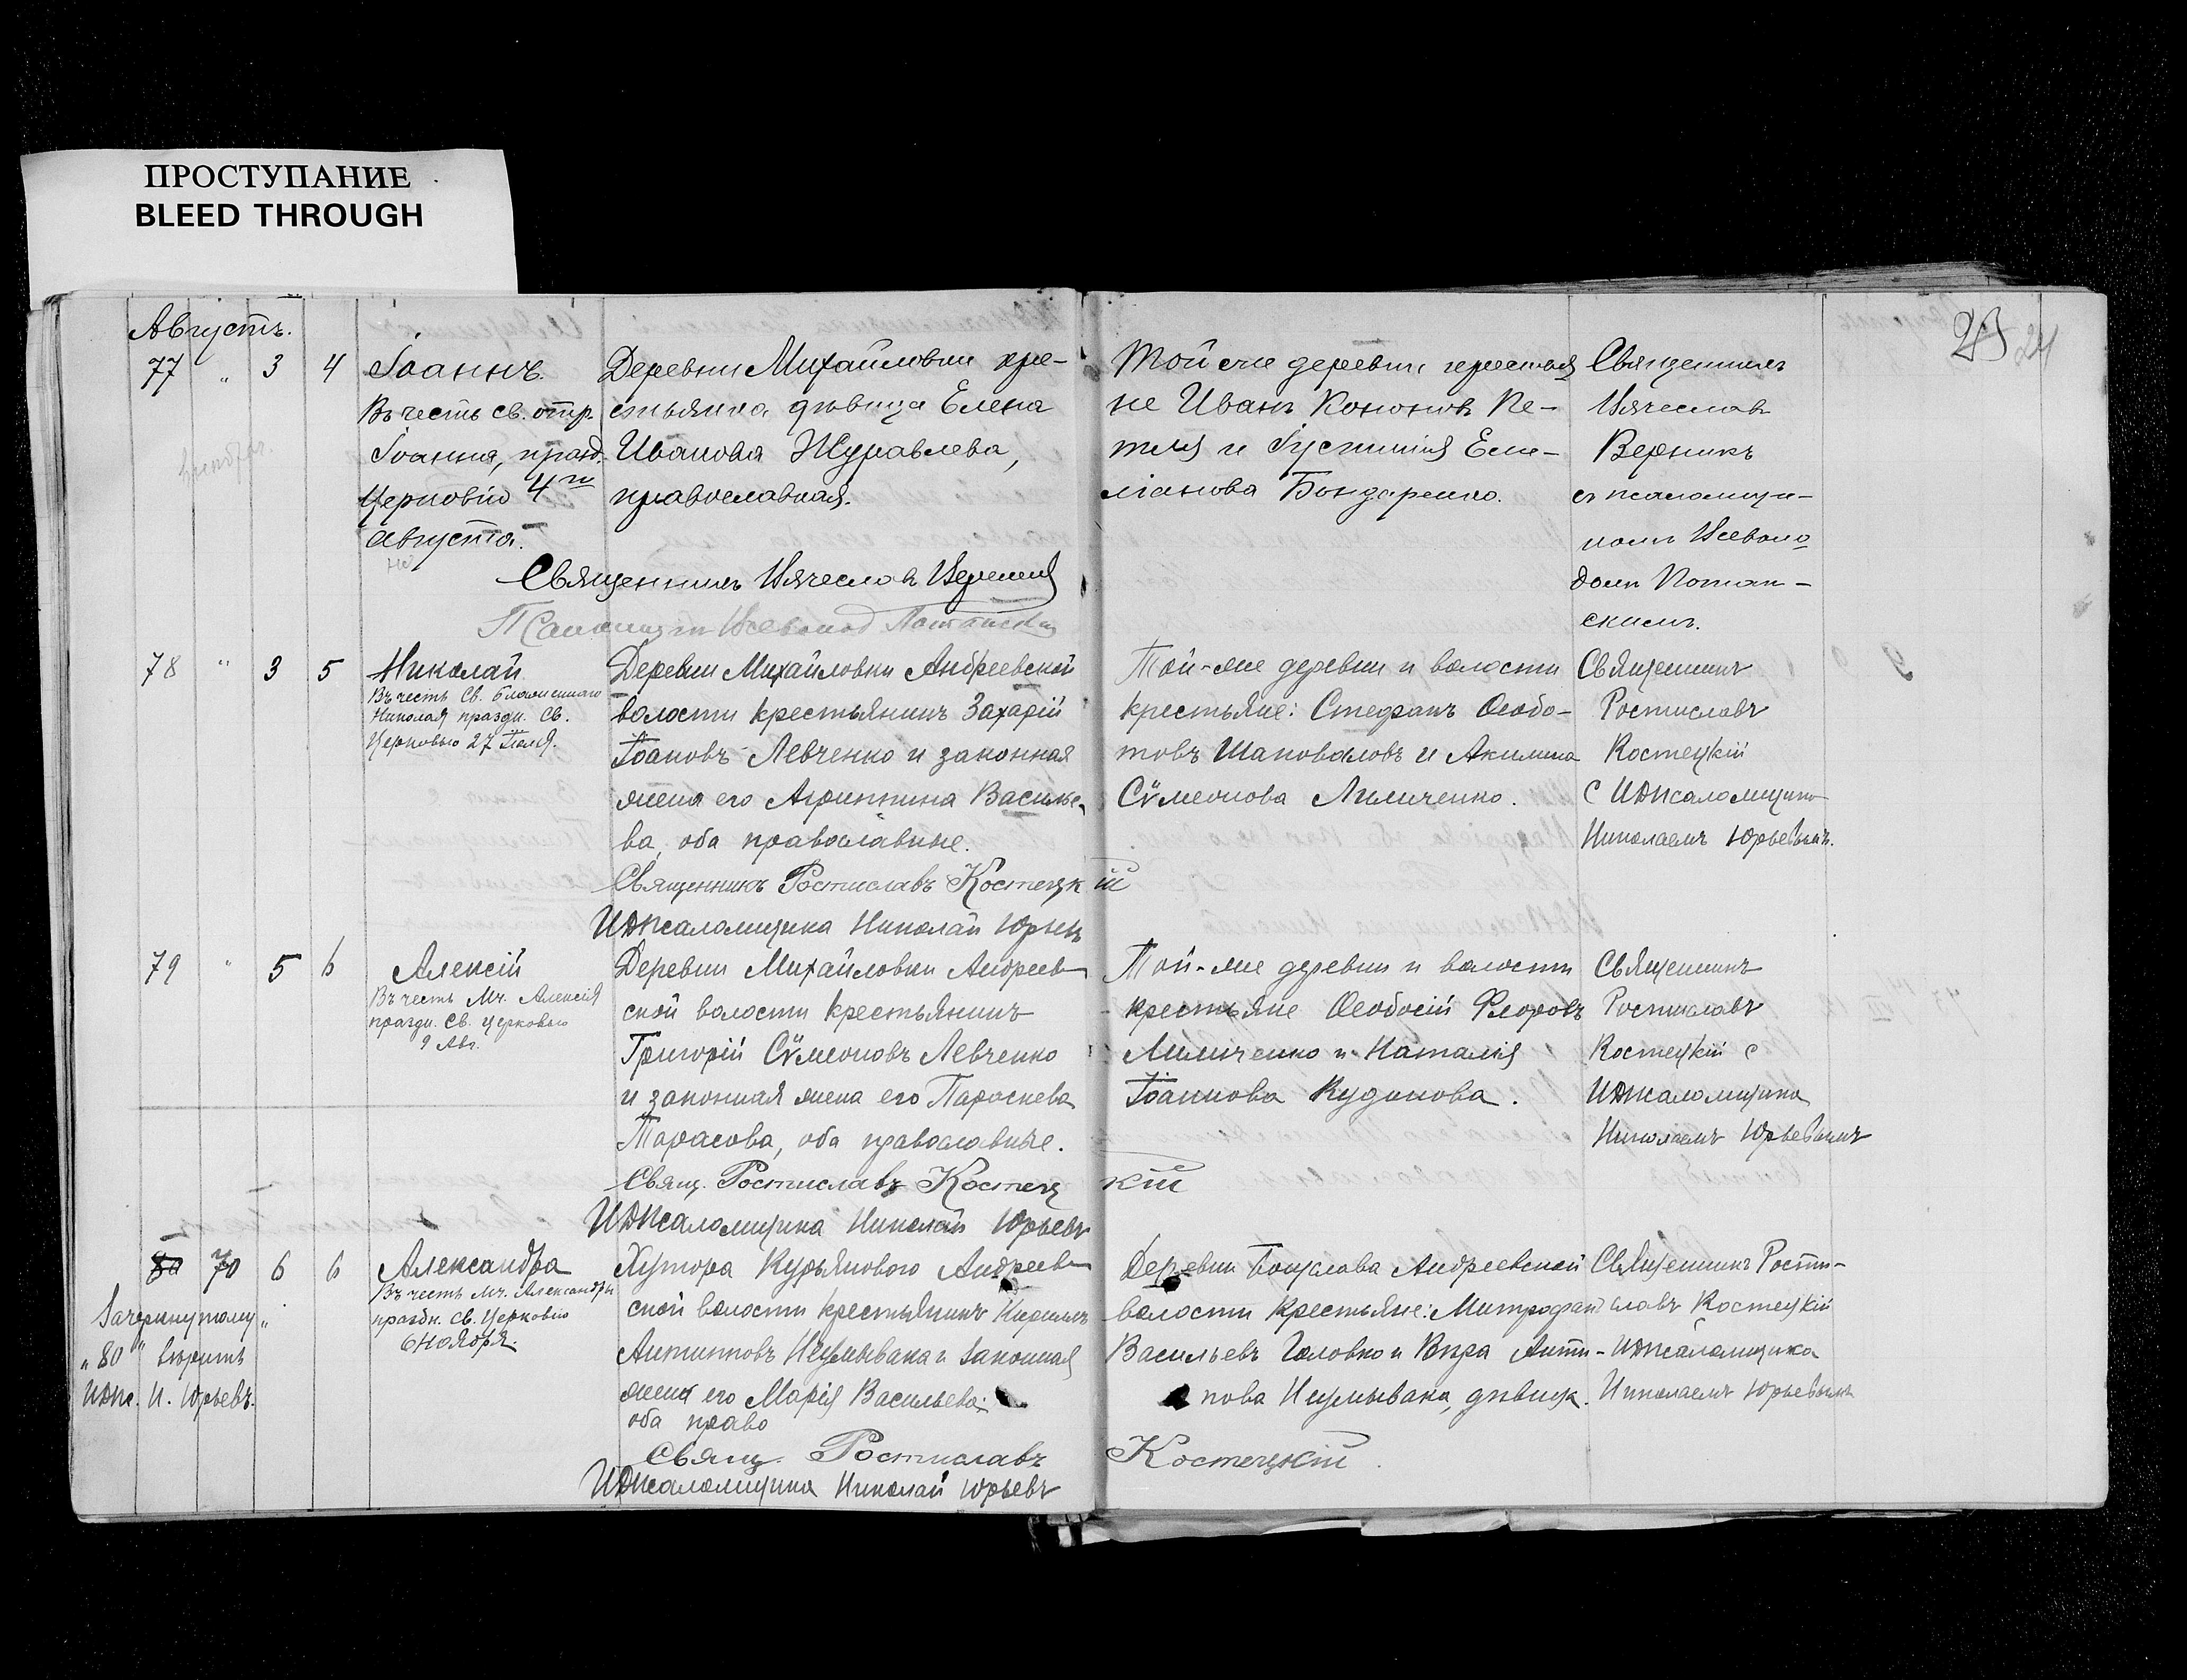 ПРОСТУПАНИЕ
BLEED THROUGH
23 24
Августъ.
77 " 3 4
Іоаннъ.
Въ честь св. отр.
Іоанна, празд.
Церковію 4го
августа.
Деревни Михайловки кре-
стьянка дѣвица Елена
Иванова Журавлева,
православная.
Той же деревни крестья
не Иванъ Кононовъ Пе-
тля и Іустинія Еме-
ліанова Бондаренко.
Священникъ
Вячеславъ
Верникъ
съ псаломщи-
комъ Всеволо
домъ Потап-
скимъ.
Священникъ Вячеславъ
Псаломщикъ Всеволод
78 " 3 5
Николай
Въ честь Св. блаженнаго
Николая праздн. Св.
Церковью 27 Іюля.
Деревни Михайловки Андреевской
волости крестьянинъ Захарій
Іоановъ Левченко и законная
жена его Агриппина Василье
ва, оба православные.
Той-же деревни и волости
крестьяне: Стефанъ Ѳеодо-
товъ Шаповаловъ и Акилина
Сѵмеонова Лиличенко.
Священникъ
Ростиславъ
Костецкій
с ИДПсаломщика
Николаемъ Юрьевымъ.
Священникъ Ростиславъ Костецкій
ИДПсаломщика Николай Юрьевъ
79 " 5 6
Алексій
Въ честь Мч. Алексія
праздн. Св. Церковью
9 Авг.
Деревни Михайловки Андреев
ской волости крестьянинъ
Григорій Сѵмеоновъ Левченко
и законная жена его Параскева
Тарасова, оба православные.
Той-же деревни и волости
крестьяне Ѳеодосій Флоровъ
Лиличенко и Наталія
Іоаннова Кудинова.
Священникъ
Ростиславъ
Костецкій с
ИДПсаломщика
Николаемъ Юрьевымъ
Свящ. Ростиславъ Костецкій
ИДПсаломщика Николай Юрьевъ
80 70 6 6
Зачеркнутому
"80" вѣрить
ИДПс. Н. Юрьевъ.
Александра
Въ честь Мч. Александры
праздн. Св. Церковію
6 Ноября.
Хутора Курьянового Андреев
ской волости крестьянинъ Кириллъ
Антиповъ Неумывака и законная
жена его Марія Васильева:
оба право
Деревни Богуслава Андреевской
волости крестьяне: Митрофан
Васильевъ Головко и Вѣра Анти-
пова Неумывака, дѣвица.
Священникъ Рости-
славъ Костецкій
ИДПсаломщика
Николаемъ Юрьевымъ
Свящ. Ростиславъ Костецкій.
ИДПсаломщика Николай Юрьевъ